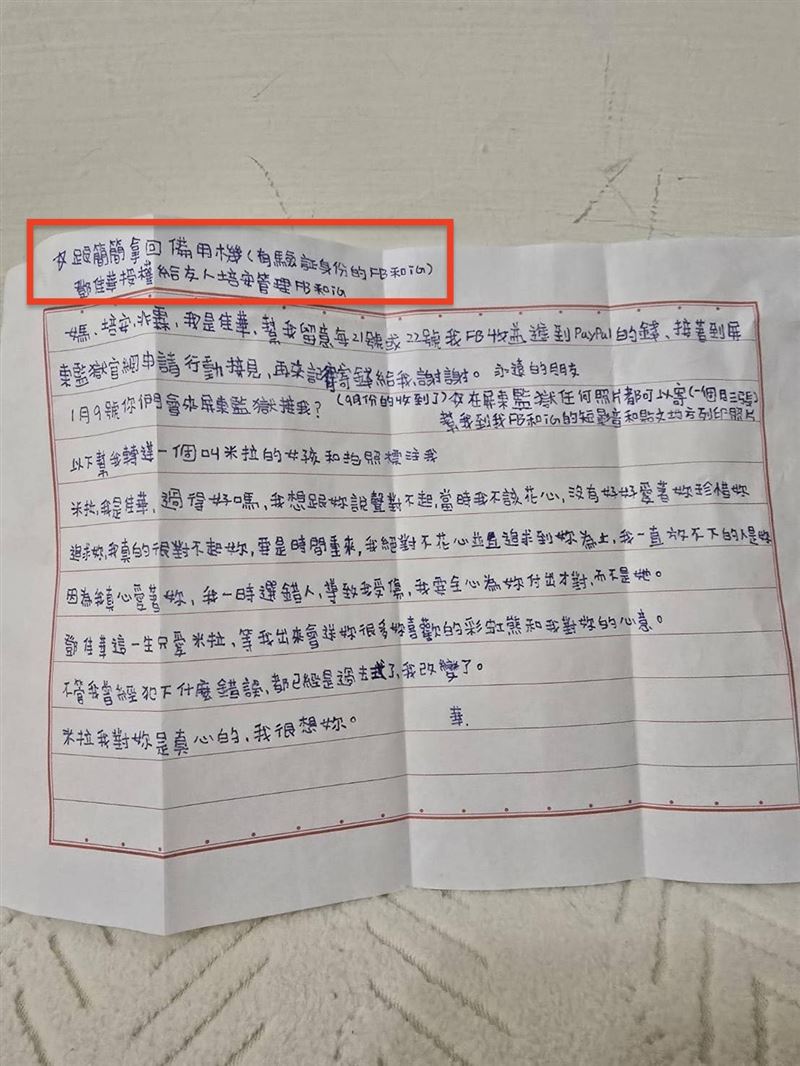 ☆跟簡簡拿回備用機(有驗証身份的FB和iG)
鄧佳華授權給友人培安管理FB和iG
媽、培安、兆霖,我是佳華,幫我留意每21號或22號我FB收益進到PayPal的錢、接著到屏
東監獄官網申請行動接見,再來記得寄錢給我,謝謝。永遠的朋友
1月9號你們會來屏東監獄接我?(9月份的收到了)☆在屏東監獄任何照片都可以寄(一個月三張)
幫我到我FB和iG的短影音和貼文地方列印照片
以下幫我轉達一個叫米拉的女孩和拍照標注我
米拉,我是佳華,過得好嗎,我想跟妳說聲對不起,當時我不該花心,沒有好好愛著妳珍惜妳
追求妳,我真的很對不起妳,要是時間重來,我絕對不花心並且追求到妳為止,我一直放不下的人是妳
因為我真心愛著妳,我一時選錯人,導致我受傷,我要全心為妳付出才對,而不是她。
鄧佳華這一生只愛米拉,等我出來會送妳很多妳喜歡的彩虹熊和我對妳的心意。
不管我曾經犯下什麼錯誤,都已經是過去式了,我改變了。
米拉我對妳是真心的,我很想妳。 華.